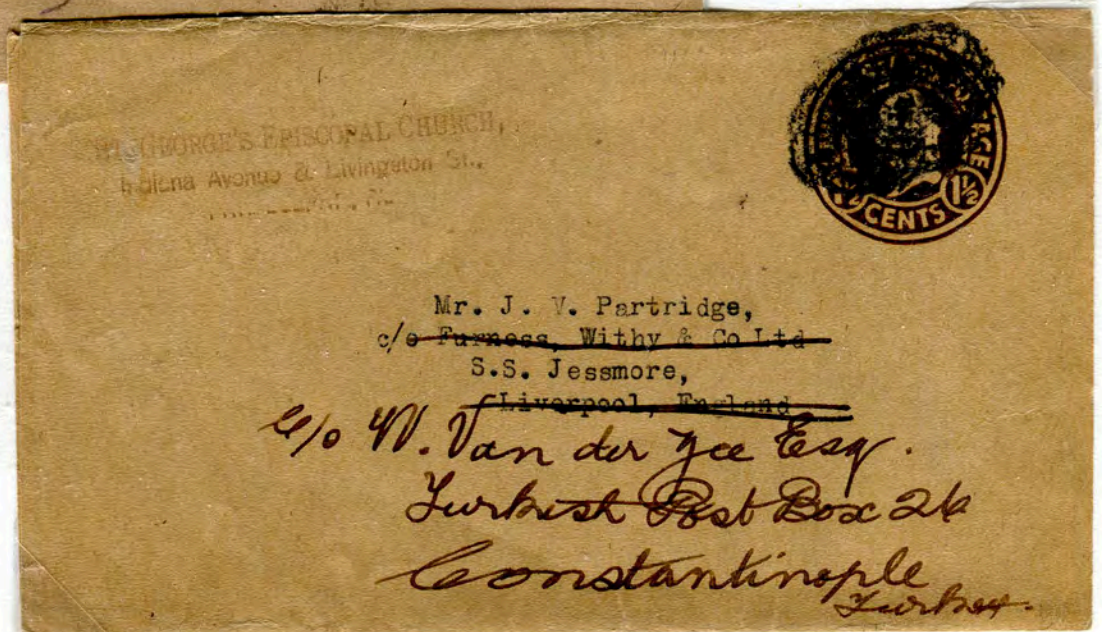 ST. GEORGE'S EPISCOPAL CHURCH,
Indiana Avenue & Livingston St.,
POSTAGE
1½
CENTS
Mr. J. V. Partridge,
c/o Furness, Withy & Co Ltd
S.S. Jessmore,
Liverpool, England
C/o W. Van der Zee Esq.
Turkish Post Box 26
Constantinople
Turkey.